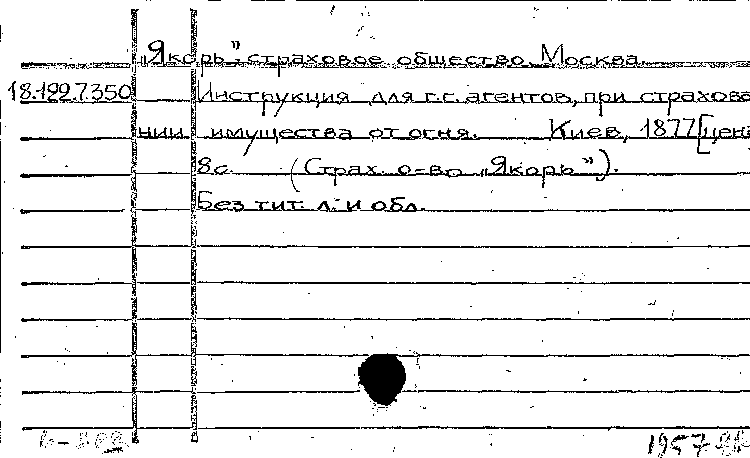 „Якорь", страховое общество. Москва.
18.199.7.350 Инструкция для г.г. агентов, при страхова
нии имущества от огня. Киев, 1877 [ценз
8с. (Страх. о-во „Якорь").
Без тит. л. и обл.
1957